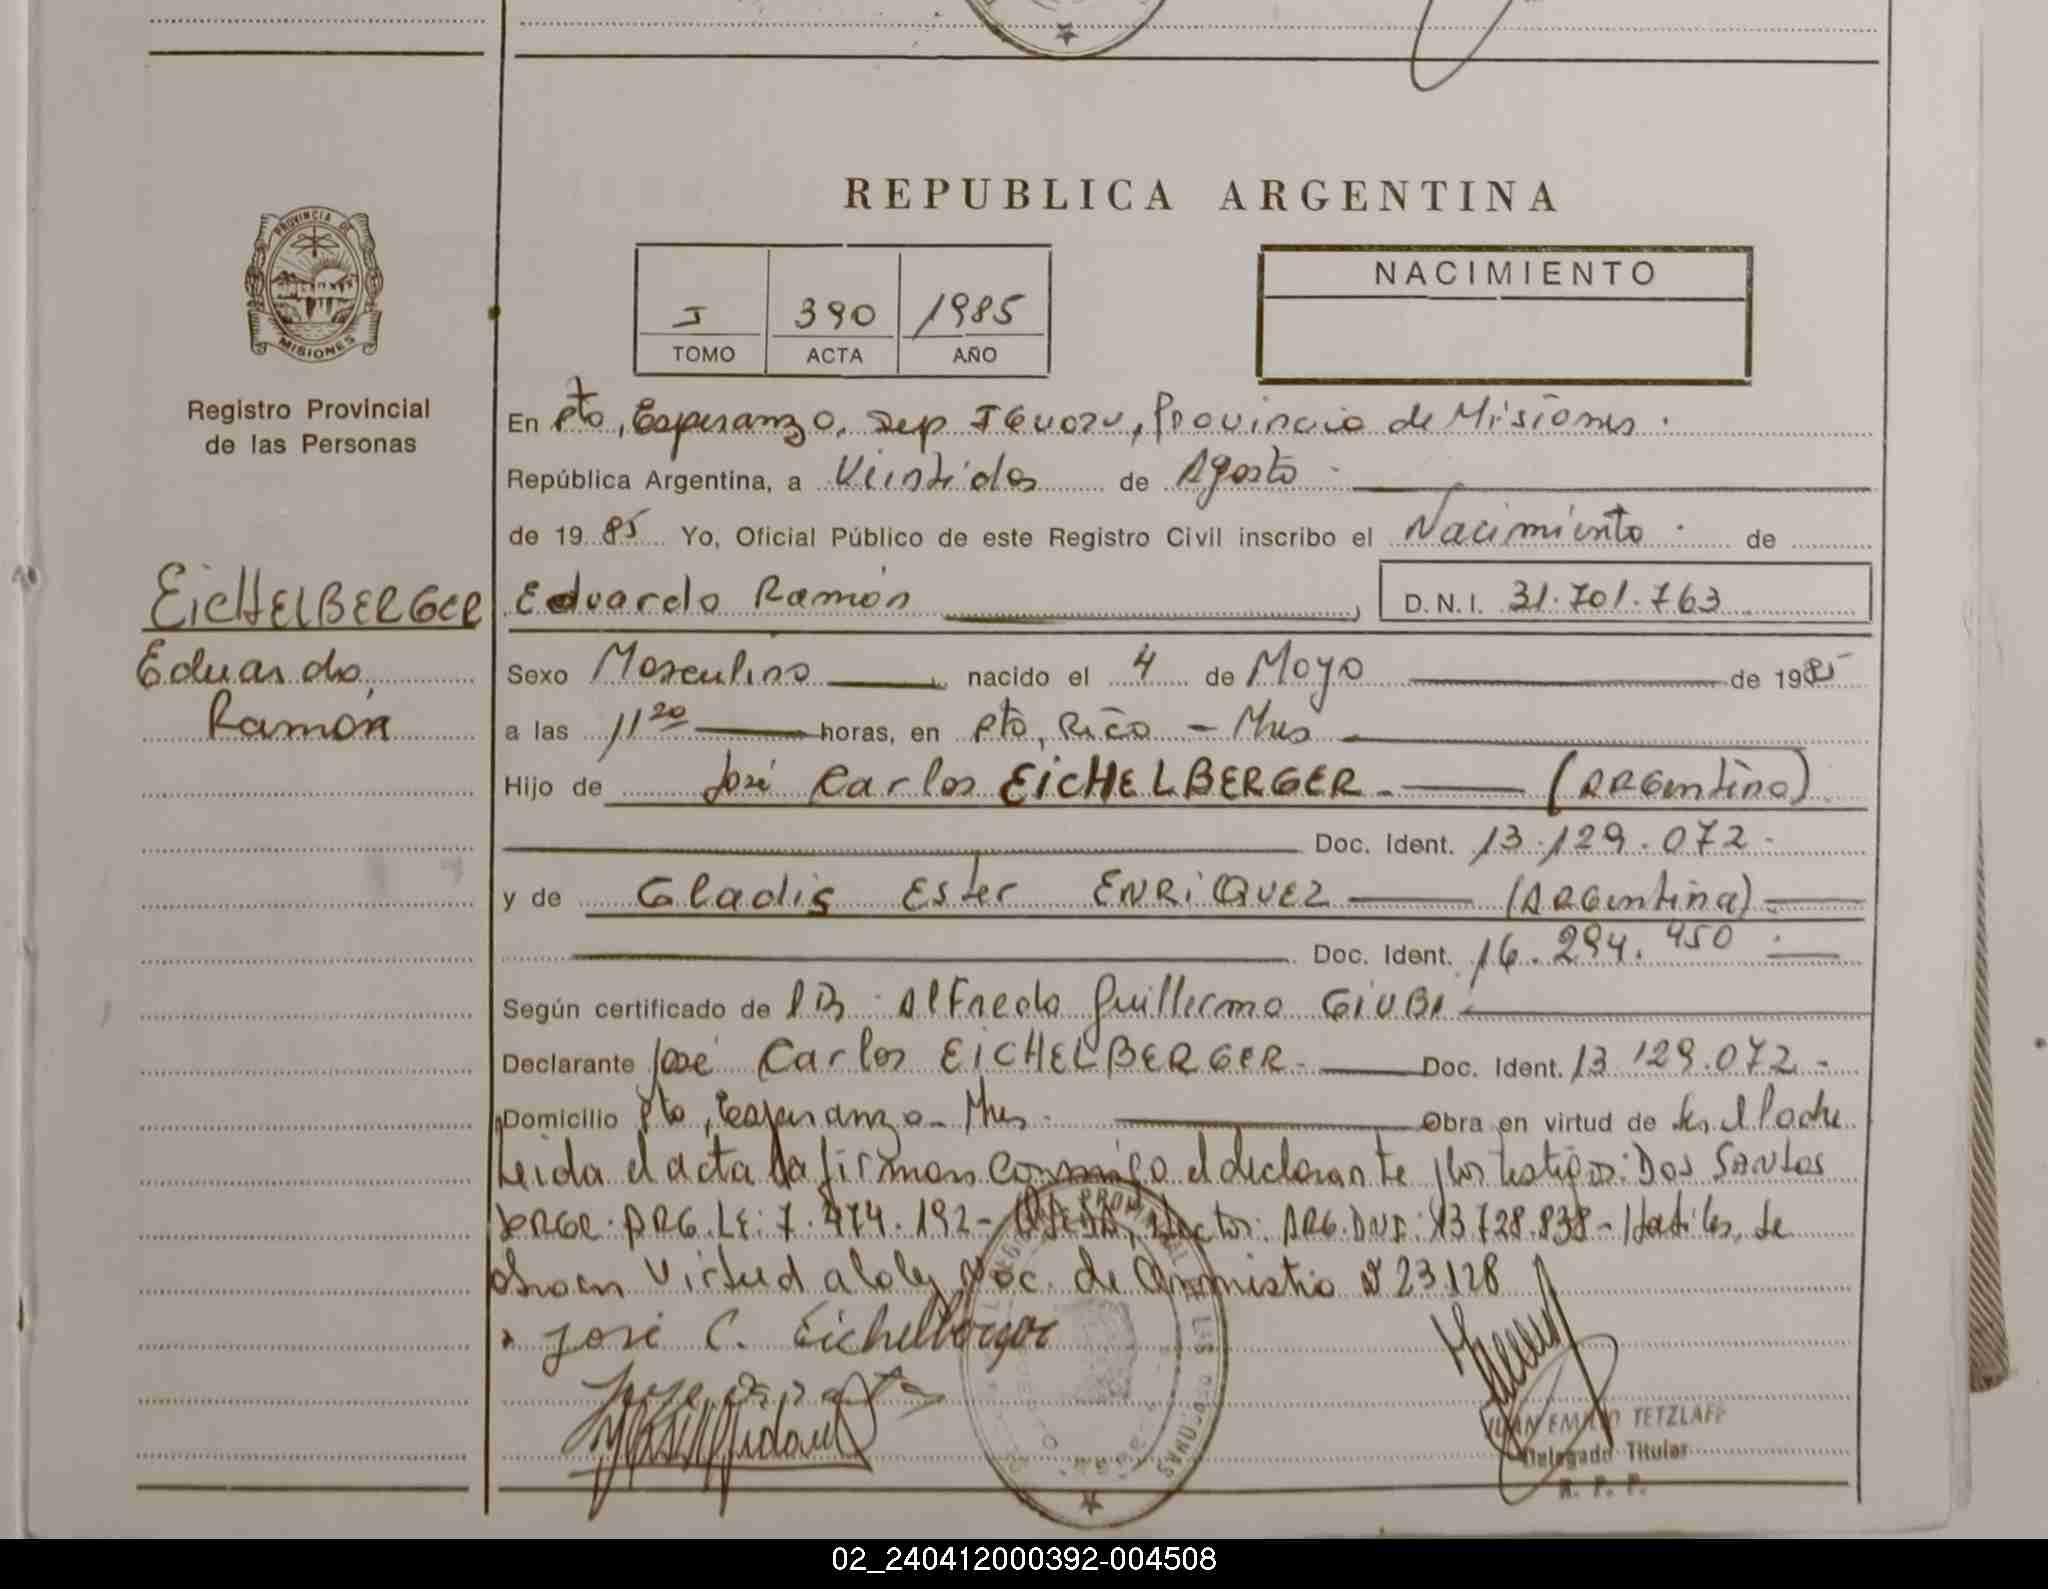 REPUBLICA ARGENTINA
PROVINCIA DE
MISIONES
Registro Provincial
de las Personas
I 390 1985
TOMO ACTA AÑO
NACIMIENTO
En Pto, Esperanza, Dep IGuazu, Provincia de Misiones.
República Argentina, a Veintidos de Agosto
de 1985 Yo, Oficial Público de este Registro Civil inscribo el Nacimiento de
EicHELBERGER
Eduardo,
Ramón
Eduardo Ramón D.N.I. 31.701.763
Sexo Masculino nacido el 4 de Mayo de 1985
a las 11 20 horas, en Pto, Rico - Mnes
Hijo de José Carlos EicHELBERGER - (ARGentino)
Doc. Ident. 13.129.072 -
y de Gladis Ester ENRiQUEZ (ARGentina)
Doc. Ident. 16.294.950
Según certificado de Alfredo Guillermo GiUBi
Declarante José Carlos EicHELBERGER - Doc. Ident. 13 129.072 -
Domicilio Pto, Esperanza - Mnes Obra en virtud de
Leida el acta la firman conmigo el declarante y los testigos: Dos SANtos
JORGE. ARG. LE: 7.474.192 - Hector: ARG. DNI: 13728.838 - Habiles, se
obra en Virtud a la ley Noc. de Amnistia Nº 23.128
José C. Eichelberger
JUAN EMILIO TETZLAFF
Delegado Titular
R. P. P.
02_240412000392-004508